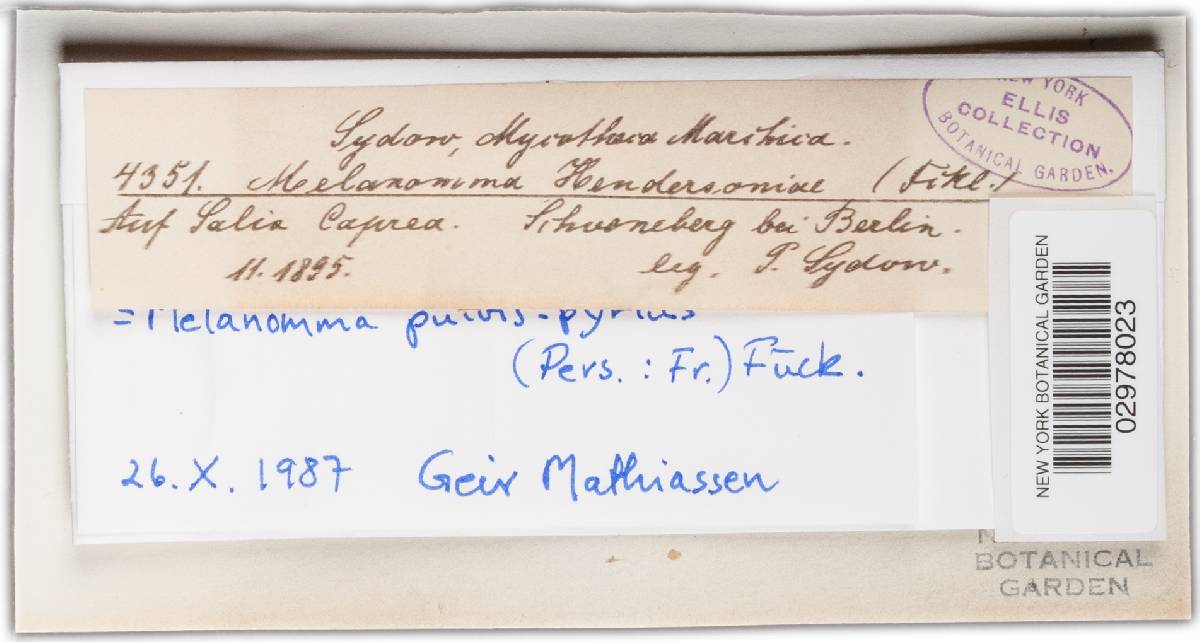 Sydow, Mycotheca Marchica.
4351. Melanomma Hendersoniae (Fckl.)
Auf Salix Caprea. Schoeneberg bei Berlin.
11.1895. leg. P. Sydow.
NEW YORK
ELLIS
COLLECTION
BOTANICAL GARDEN.
= Melanomma pulvis-pyrius
(Pers. : Fr.) Fuck.
26. X. 1987 Geir Mathiassen
NEW YORK BOTANICAL GARDEN
02978023
BOTANICAL
GARDEN